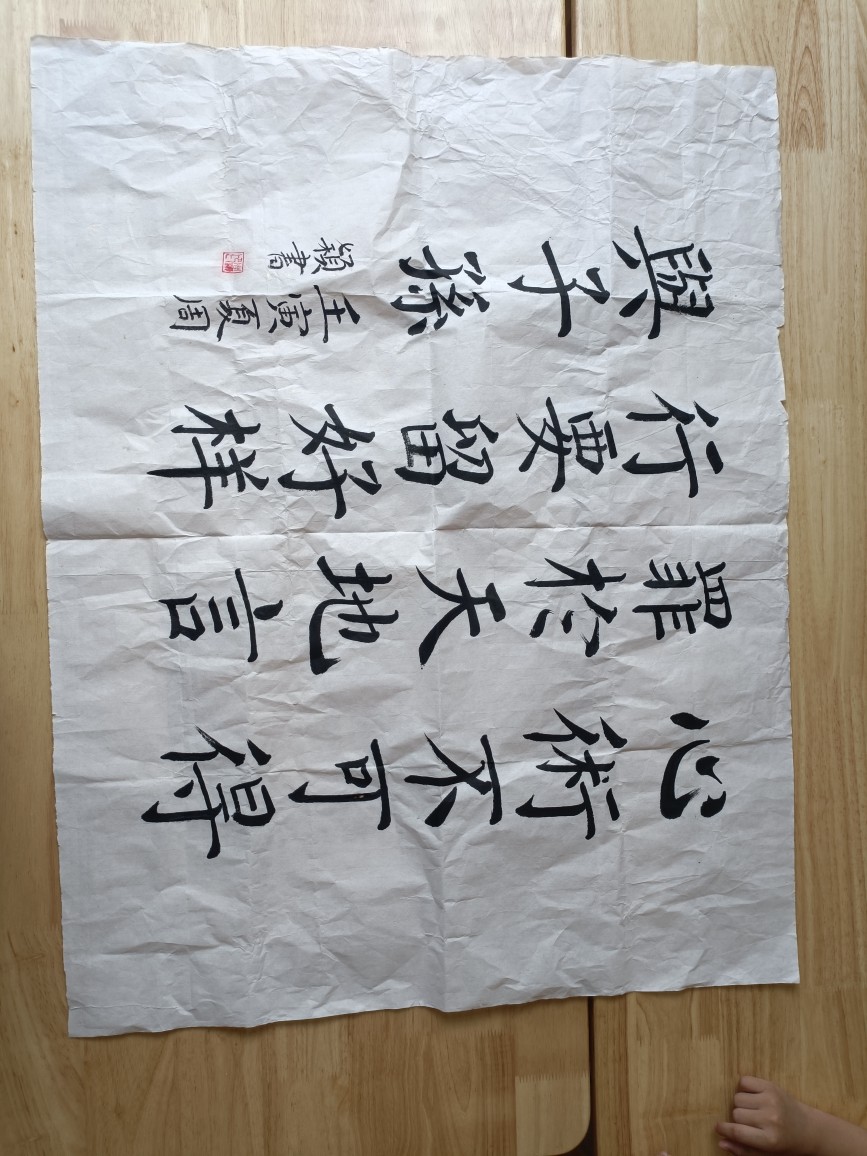 心術不可得
罪於天地言
行要留好样
與子孫
壬寅夏周
穎書